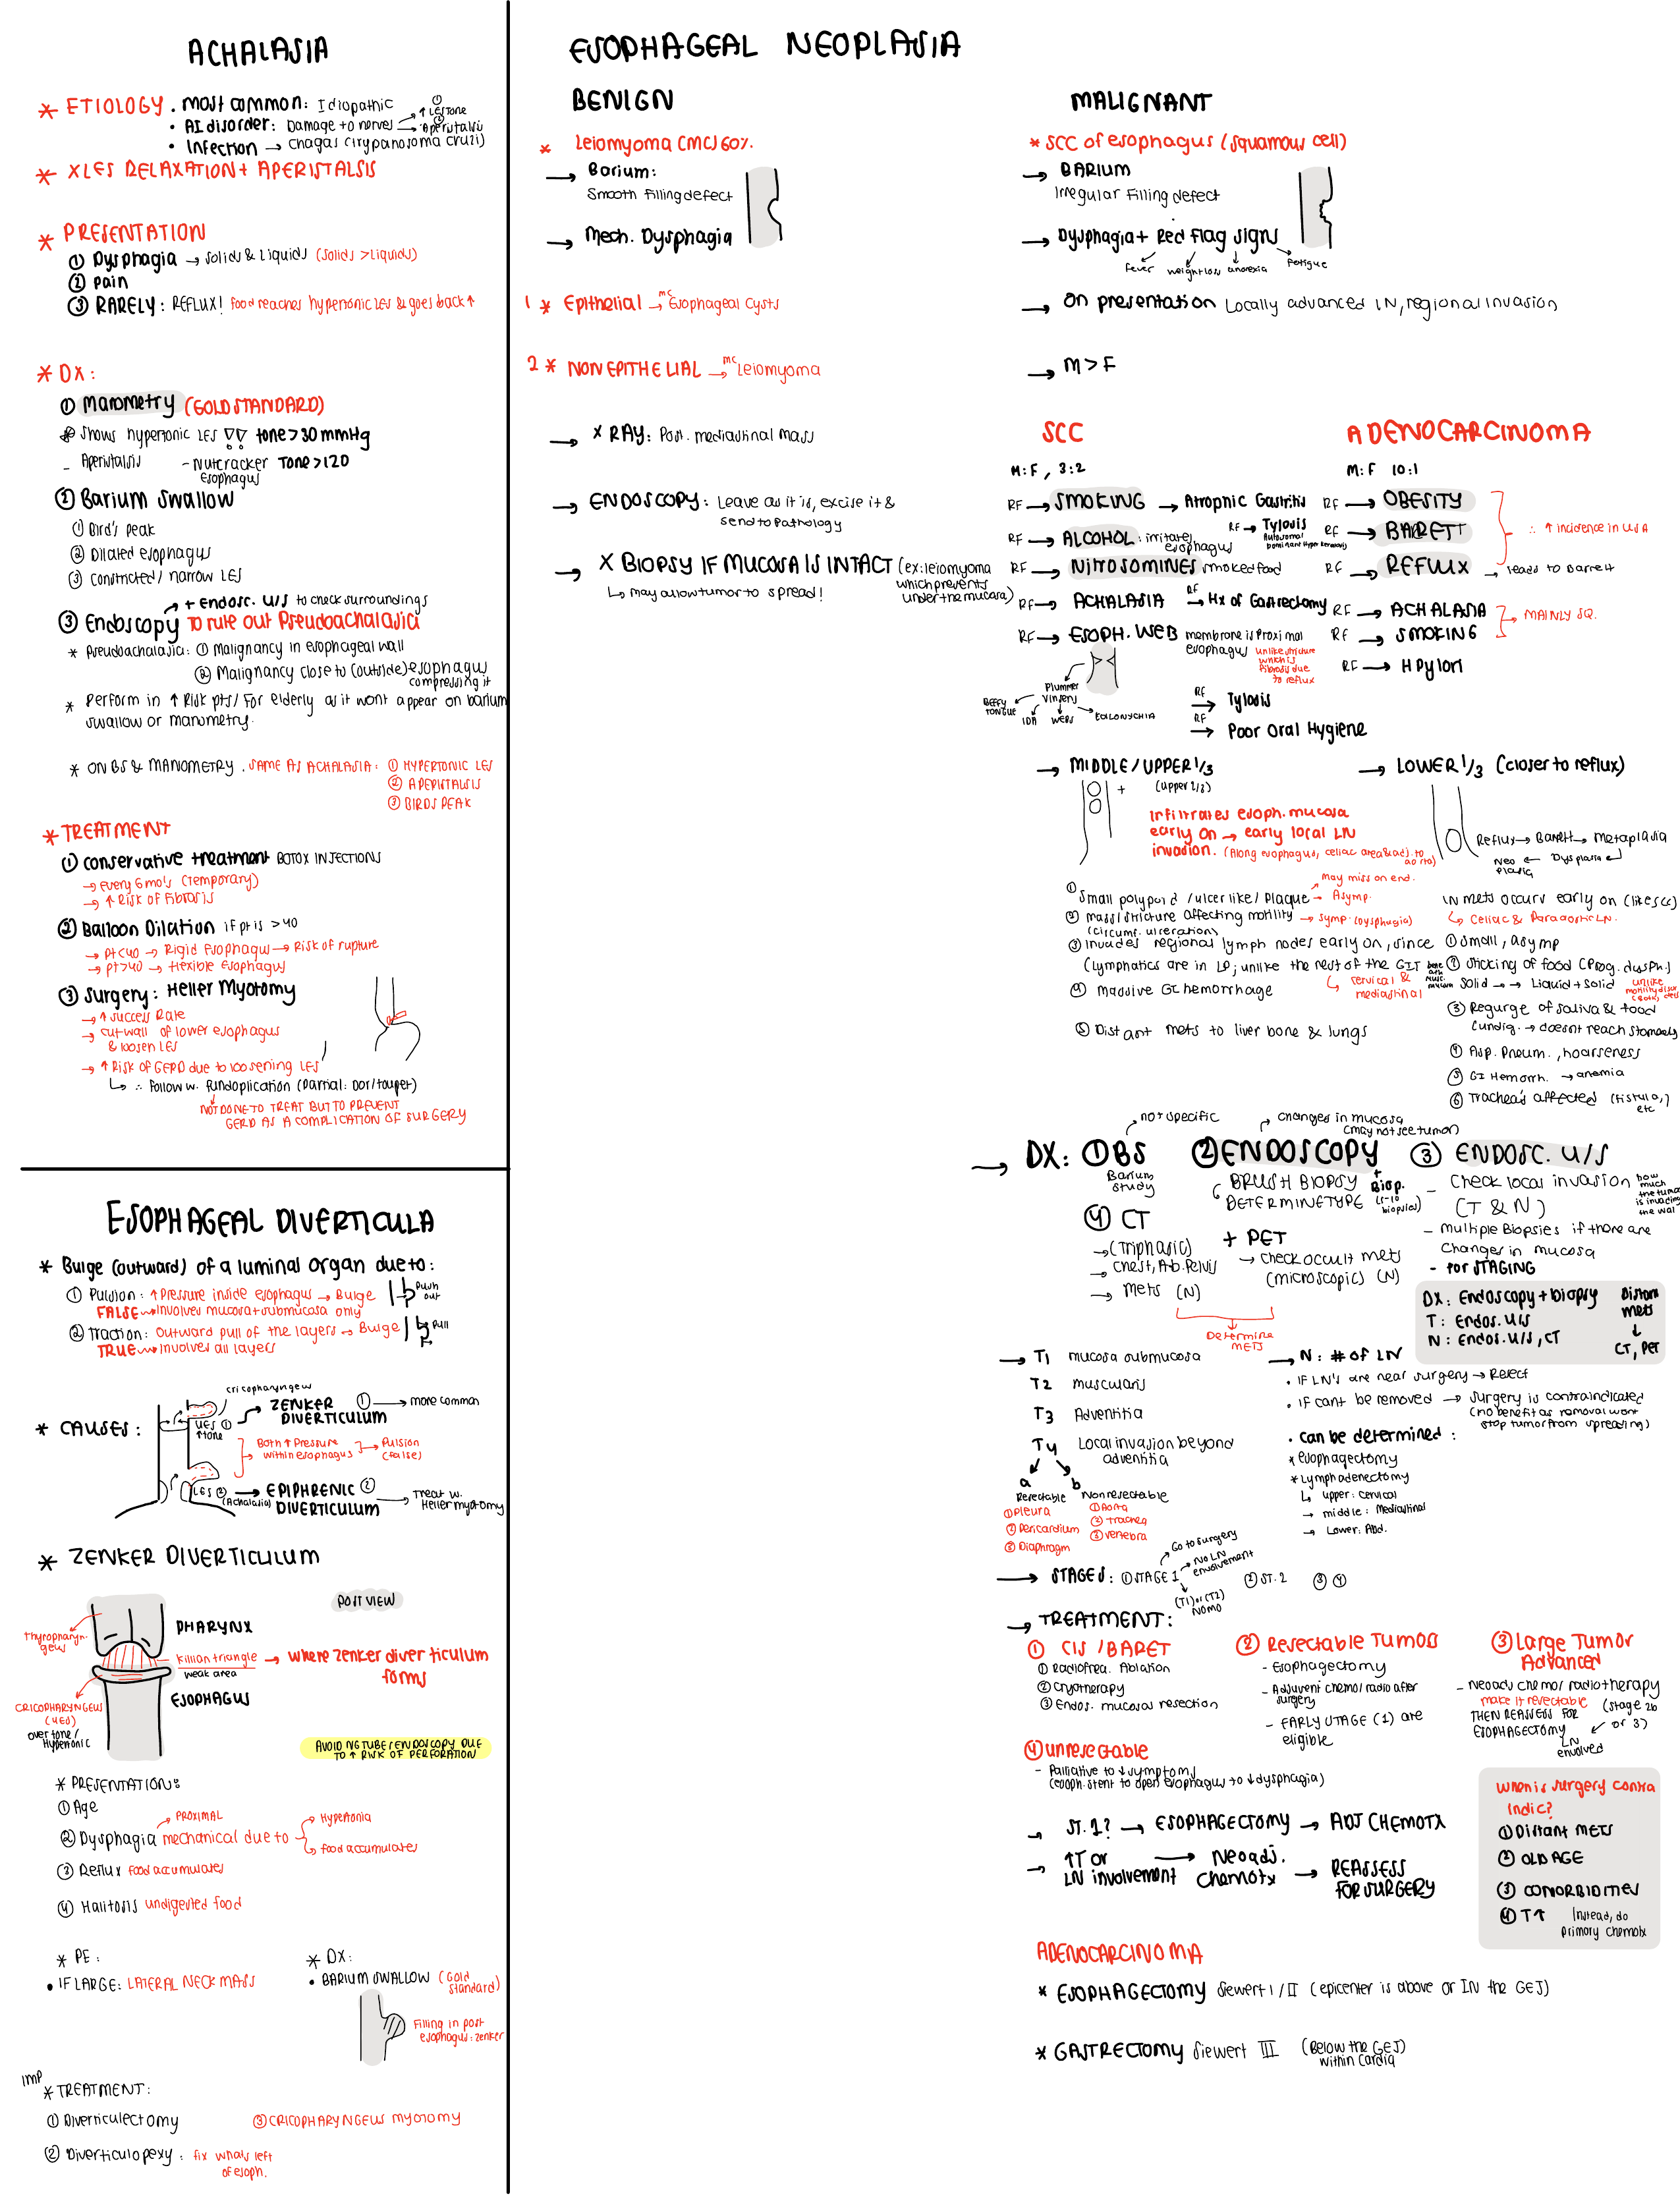 ACHALASIA
* ETIOLOGY . most common: Idiopathic
• AI disorder: Damage to nerves → ① ↑ LES tone ② Aperistalsis
• Infection → Chagas (trypanosoma cruzi)
* X LES RELAXATION + APERISTALSIS
* PRESENTATION
① Dysphagia → solids & Liquids (solids > Liquids)
② Pain
③ RARELY: REFLUX! food reaches hypertonic LES & goes back ↑
* DX:
① Manometry (GOLD STANDARD)
* shows hypertonic LES !! tone > 30 mmHg
- Aperistalsis
- Nutcracker Esophagus Tone > 120
② Barium Swallow
① Bird's peak
② Dilated esophagus
③ Constricted / narrow LES
+ Endosc. U/S to check surroundings
③ Endoscopy To rule out Pseudoachalasia
* Pseudoachalasia: ① Malignancy in esophageal wall
② Malignancy close to (outside) esophagus compressing it
* Perform in ↑ Risk pts / For elderly as it wont appear on barium
swallow or manometry.
* ON BS & MANOMETRY . SAME AS ACHALASIA: ① HYPERTONIC LES
② APERISTALSIS
③ BIRDS PEAK
* TREATMENT
① conservative treatment BOTOX INJECTIONS
→ every 6 mo's (temporary)
→ ↑ Risk of Fibrosis
② Balloon Dilation if pt is > 40
→ pt < 40 → Rigid Esophagus → Risk of rupture
→ pt > 40 → flexible Esophagus
③ Surgery: Heller Myotomy
→ ↑ success Rate
→ cut wall of lower esophagus
& loosen LES
→ ↑ Risk of GERD due to loosening LES
↳ ∴ Follow w. fundoplication (Partial: Dor/toupet)
NOT DONE TO TREAT BUT TO PREVENT
GERD AS A COMPLICATION OF SURGERY
ESOPHAGEAL DIVERTICULA
* Bulge (outward) of a luminal organ due to:
① Pulsion: ↑ Pressure inside esophagus → Bulge
Push out
FALSE → involves mucosa + submucosa only
② Traction: Outward pull of the layers → Bulge
Pull
TRUE → involves all layers
* CAUSES:
cricopharyngeus
UES ① ↑ tone
ZENKER DIVERTICULUM ① → more common
Both ↑ Pressure within esophagus → Pulsion (false)
LES ② (Achalasia) → EPIPHRENIC DIVERTICULUM ② → Treat w. Heller myotomy
* ZENKER DIVERTICULUM
POST VIEW
PHARYNX
Thyropharyngeus
killian triangle → where Zenker diverticulum forms
weak area
ESOPHAGUS
CRICOPHARYNGEUS (UES)
over tone / Hypertonic
AVOID NG TUBE / ENDOSCOPY DUE
TO ↑ RISK OF PERFORATION
* PRESENTATION:
① Age
② Dysphagia mechanical due to
PROXIMAL
Hypertonia
food accumulates
③ Reflux food accumulates
④ Halitosis undigested food
* PE:
• IF LARGE: LATERAL NECK MASS
* DX:
• BARIUM SWALLOW (Gold standard)
Filling in post
esophagus: zenker
IMP
* TREATMENT:
① Diverticulectomy
③ CRICOPHARYNGEUS MYOTOMY
② Diverticulopexy: fix whats left
of esoph.
ESOPHAGEAL NEOPLASIA
BENIGN
* Leiomyoma (MC) 60%.
→ Barium:
Smooth Filling defect
→ Mech. Dysphagia
1 * Epithelial → mc Esophageal Cysts
2 * NON EPITHELIAL → mc Leiomyoma
→ X RAY: Post. mediastinal mass
→ ENDOSCOPY: Leave as it is, excise it &
send to Pathology
→ X BIOPSY IF MUCOSA IS INTACT (ex: leiomyoma
which prevents
under the mucosa)
↳ may allow tumor to spread!
MALIGNANT
* SCC of esophagus (squamous cell)
→ BARIUM
Irregular Filling defect
→ Dysphagia + Red flag signs
Fever weight loss anorexia fatigue
→ On presentation Locally advanced LN, regional invasion
→ M > F
SCC
M:F, 3:2
RF → SMOKING → Atrophic Gastritis
RF → ALCOHOL: irritates esophagus
RF → Tylosis
Autosomal dominant Hyper keratosis
RF → Nitrosomines smoked food
RF → ACHALASIA
RF → Hx of Gastrectomy
RF → ESOPH. WEB membrane is Proximal
esophagus unlike stricture
which is
fibrosis due
to reflux
Plummer Vinson
BEEFY TONGUE IDA WEBS KOILONYCHIA
RF → Tylosis
RF → Poor Oral Hygiene
ADENOCARCINOMA
M:F 10:1
RF → OBESITY
RF → BARETT
∴ ↑ incidence in USA
RF → REFLUX → leads to Barrett
RF → ACHALASIA
RF → SMOKING
→ MAINLY SQ.
RF → H Pylori
→ MIDDLE / UPPER 1/3
(upper 2/3)
+
Infiltrates esoph. mucosa
early on → early local LN
invasion. (Along esophagus, celiac area & adj. to aorta)
① Small polypoid / ulcer like / Plaque → Asymp.
may miss on end.
② mass / stricture affecting motility → symp. (dysphagia)
(circumf. ulceration)
③ Invades regional lymph nodes early on, since
(lymphatics are in LP; unlike the rest of the GIT
cervical & mediastinal
④ massive GI hemorrhage
⑤ Distant mets to liver bone & lungs
→ LOWER 1/3 (closer to reflux)
Reflux → Barett → Metaplasia
Dysplasia
Neoplasia
LN mets occurs early on (like scc)
↳ Celiac & Paraaortic LN.
① small, asymp
② sticking of food (Prog. dysph.)
Solid → → Liquid + Solid
③ Regurge of saliva & food
(undig. → doesnt reach stomach)
④ Asp. Pneum., hoarseness
⑤ GI Hemorrh. → anemia
⑥ Trachea's affected (fistula, etc)
→ DX: ① BS
not specific
Barium study
② ENDOSCOPY
changes in mucosa
(may not see tumor)
BRUSH BIOPSY + Biop.
DETERMINE TYPE
③ ENDOSC. U/S
- Check local invasion
(T & N)
how much the tumor is invading the wall
- multiple Biopsies if there are
changes in mucosa
- For STAGING
④ CT
→ (Triphasic)
→ Chest, Ab. Pelvis
→ mets (N)
+ PET
→ check occult mets
(microscopic) (N)
Determine METS
DX: Endoscopy + biopsy
T: Endos. U/S
N: Endos. U/S, CT
Distant mets
↓
CT, PET
→ T1 mucosa submucosa
T2 muscularis
T3 Adventitia
T4 Local invasion beyond
adventitia
a Resectable
① Pleura
② Pericardium
③ Diaphragm
b Nonresectable
① Aorta
② trachea
③ vertebra
→ N: # of LN
• IF LN's are near surgery → Resect
• IF cant be removed → surgery is contraindicated
(no benefit as removal wont
stop tumor from spreading)
• can be determined:
* esophagectomy
* Lymphadenectomy
↳ upper: cervical
→ middle: Mediastinal
→ Lower: Abd.
→ STAGES: ① STAGE 1
Go to surgery
No LN envolvement
(T1) or (T2) N0M0
② ST. 2
③ ④
→ TREATMENT:
① CIS / BARET
① Radiofreq. Ablation
② Cryotherapy
③ Endos. mucosal resection
② Resectable Tumors
- Esophagectomy
- Adjuvent chemo / radio after
surgery
- EARLY STAGE (1) are
eligible
③ Large Tumor
Advanced
- Neoadj chemo / radiotherapy
make it resectable
THEN REASSESS FOR
ESOPHAGECTOMY
(stage 2b
or 3)
LN envolved
④ unresectable
- Palliative to ↓ symptoms
(esoph. stent to open esophagus to ↓ dysphagia)
→ ST. 1? → ESOPHAGECTOMY → ADJ CHEMOTX
→ ↑T or LN involvement → Neoadj. Chemotx → REASSESS FOR SURGERY
When is surgery contra
indic?
① Distant METS
② OLD AGE
③ COMORBIDITIES
④ T↑ Instead, do
primary chemotx
ADENOCARCINOMA
* ESOPHAGECTOMY Siewert I / II (epicenter is above or IN the GEJ)
* GASTRECTOMY Siewert III (Below the GEJ)
within cardia